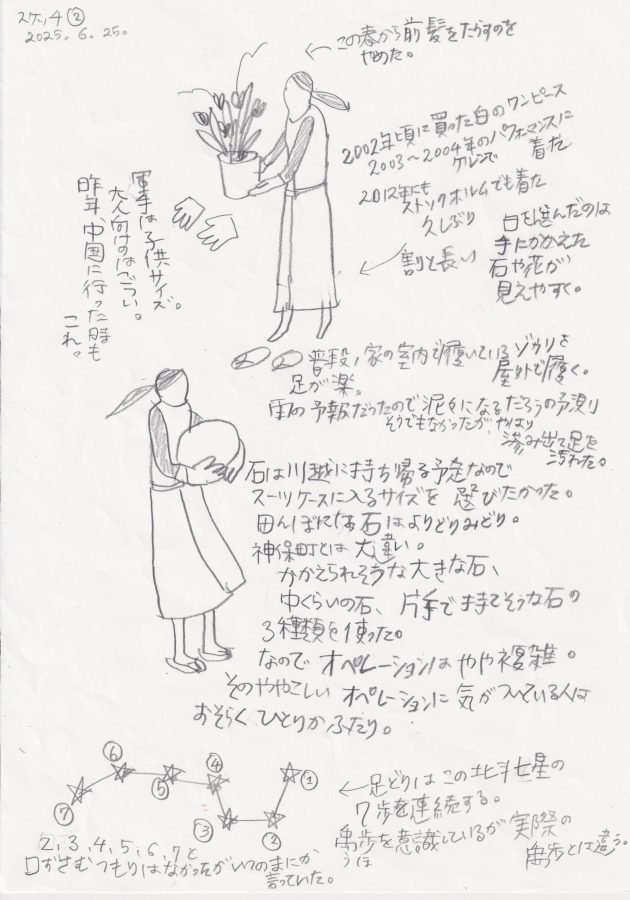 スケッチ②
2025. 6. 25.
この春から前髪をたらすのを
やめた。
2002年頃に買った白のワンピース
2003〜2004年のパフォーマンスに
クレンで 着た
2012年にも
ストックホルムでも着た
久しぶり
割と長い
白を選んだのは
手にかかえた
石や花が
見えやすく。
軍手は子供サイズ。
大人向けのはごつい。
昨年、中国に行った時も
これ。
普段、家の室内で履いているゾウリを
屋外で履く。
足が楽。
雨の予報だったので泥々になるだろうの予測
そうでもなかったが、やはり
滲み出て足を
汚した。
石は川越に持ち帰る予定なので
スーツケースに入るサイズを選びたかった。
田んぼにある石はよりどりみどり。
神保町とは大違い。
かかえられそうな大きな石、
中くらいの石、片手で持てそうな石の
3種類を使った。
なので オペレーションはやや複雑。
そのややこしい オペレーションに気がついている人は
おそらくひとりかふたり。
⑥
④
①
⑤
⑦
③
②
足どりはこの北斗七星の
7歩を連続する。
禹歩を意識しているが実際の
うほ
禹歩とは違う。
2、3、4、5、6、7と
口ずさむつもりはなかったがいつのまにか
言っていた。